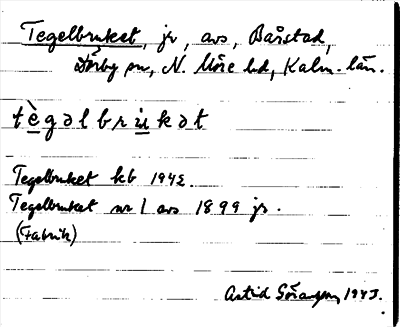 Tegelbruket, jr, avs, Båtstad,
Dörby sn, N. Möre hd, Kalm. län.
tègəlbrukət
Tegelbruket kb 1942
Tegelbruket nr 1 avs 1899 jr.
(Fabrik)
Astrid Göransson 1943.